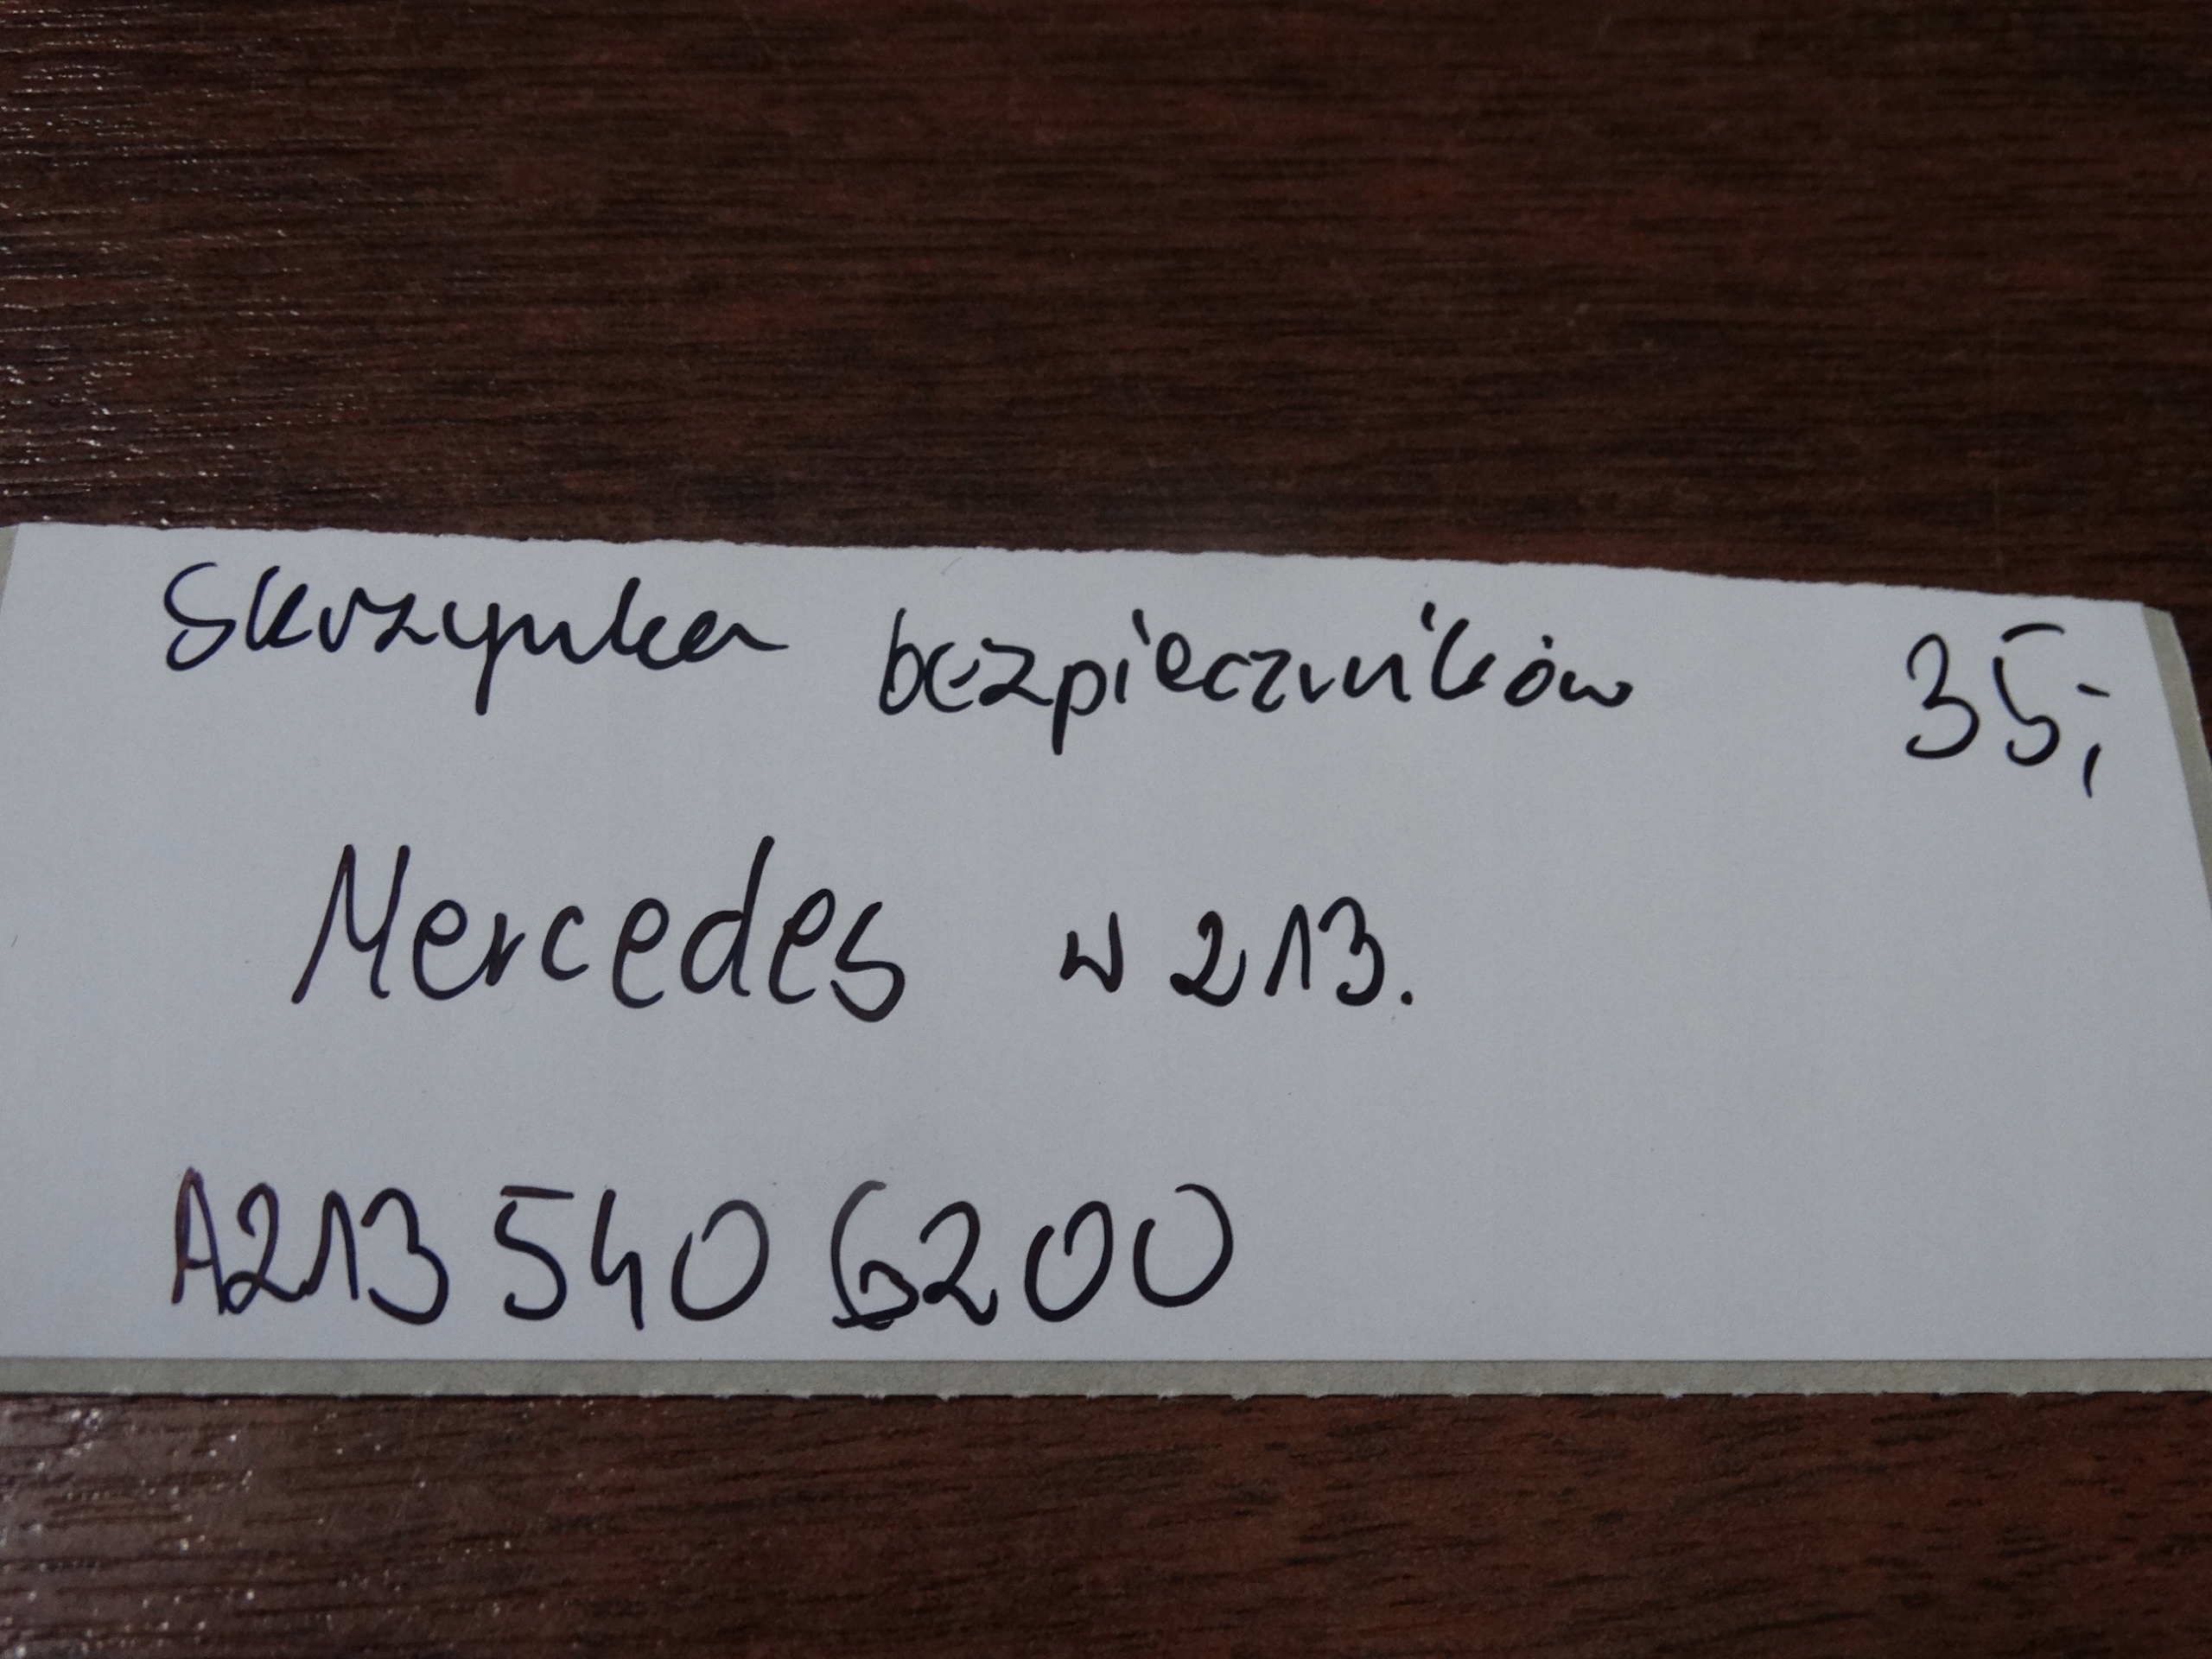 Skrzynka bezpieczników 35,-
Mercedes w 213.
A213 540 6200